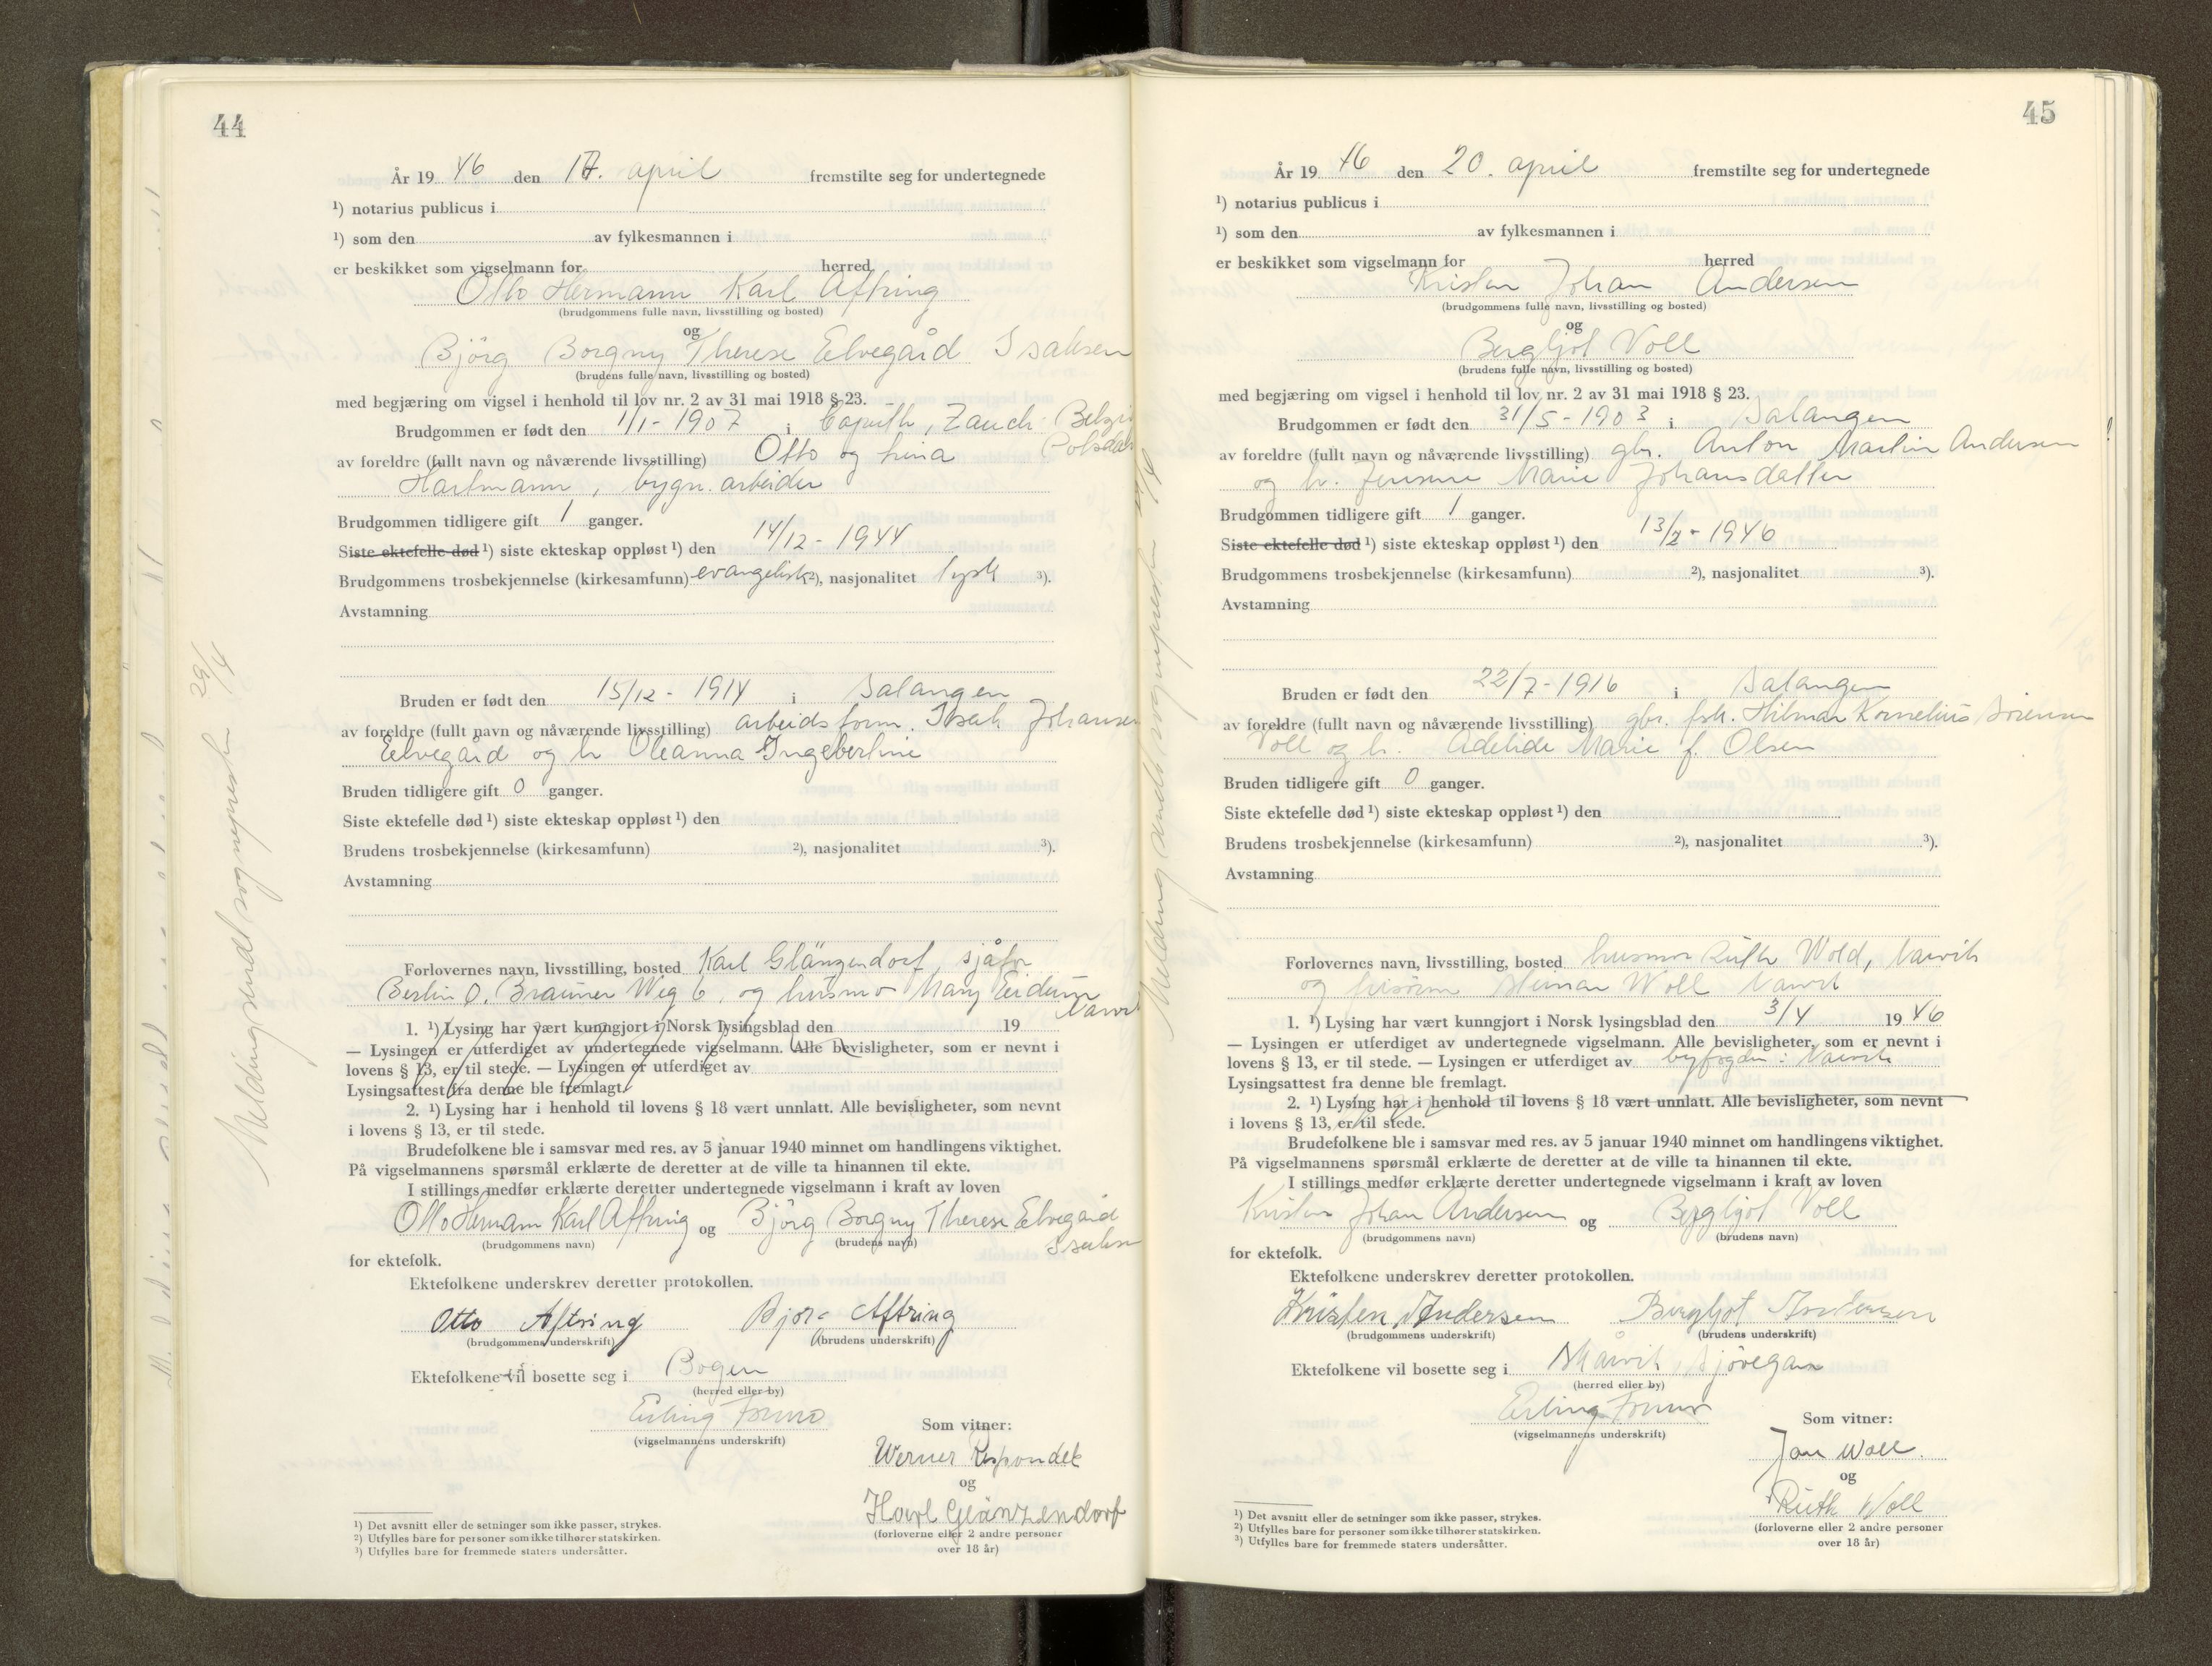 44
År 19 46 den 17. april fremstilte seg for undertegnede
¹) notarius publicus i
¹) som den av fylkesmannen i
er beskikket som vigselmann for herred
Otto Hermann Karl Aftring
(brudgommens fulle navn, livsstilling og bosted)
og
Bjørg Borgny Therese Elvegård Isaksen
(brudens fulle navn, livsstilling og bosted)
med begjæring om vigsel i henhold til lov nr. 2 av 31 mai 1918 § 23.
Brudgommen er født den 1/1 - 1907 i Caputh, Zauch-Belzig
av foreldre (fullt navn og nåværende livsstilling) Otto og
Hartmann, bygn. arbeider
Brudgommen tidligere gift 1 ganger.
Siste ektefelle død ¹) siste ekteskap oppløst ¹) den 14/12 - 1944
Brudgommens trosbekjennelse (kirkesamfunn) evangelisk ²), nasjonalitet tysk ³).
Avstamning
Bruden er født den 15/12 - 1914 i Salangen
av foreldre (fullt navn og nåværende livsstilling) arbeidsform. Isak Johansen
Elvegård og h. Oleanna Ingebertine
Bruden tidligere gift 0 ganger.
Siste ektefelle død ¹) siste ekteskap oppløst ¹) den
Brudens trosbekjennelse (kirkesamfunn) ²), nasjonalitet ³).
Avstamning
Forlovernes navn, livsstilling, bosted Karl Glänzendorf, sjåfør
Berlin O. Weg 6, og husmor Mary
Narvik
1. ¹) Lysing har vært kunngjort i Norsk lysingsblad den 19
— Lysingen er utferdiget av undertegnede vigselmann. Alle bevisligheter, som er nevnt i
lovens § 13, er til stede. — Lysingen er utferdiget av
Lysingsattest fra denne ble fremlagt.
2. ¹) Lysing har i henhold til lovens § 18 vært unnlatt. Alle bevisligheter, som nevnt
i lovens § 13, er til stede.
Brudefolkene ble i samsvar med res. av 5 januar 1940 minnet om handlingens viktighet.
På vigselmannens spørsmål erklærte de deretter at de ville ta hinannen til ekte.
I stillings medfør erklærte deretter undertegnede vigselmann i kraft av loven
Otto Hermann Karl Aftring og Bjørg Borgny Therese Elvegård
Isaksen
(brudgommens navn) (brudens navn)
for ektefolk.
Ektefolkene underskrev deretter protokollen.
Otto Aftring Bjørg Aftring
(brudgommens underskrift) (brudens underskrift)
Ektefolkene vil bosette seg i Bogen
(herred eller by)
Erling
(vigselmannens underskrift)
Som vitner:
Werner Respondek
og
Karl Glänzendorf
(forloverne eller 2 andre personer
over 18 år)
¹) Det avsnitt eller de setninger som ikke passer, strykes.
²) Utfylles bare for personer som ikke tilhører statskirken.
³) Utfylles bare for fremmede staters undersåtter.
Melding sendt sognepresten 29/4
45
År 19 46 den 20. april fremstilte seg for undertegnede
¹) notarius publicus i
¹) som den av fylkesmannen i
er beskikket som vigselmann for herred
Kristen Johan Andersen
(brudgommens fulle navn, livsstilling og bosted)
og
Bergljot Voll
(brudens fulle navn, livsstilling og bosted)
med begjæring om vigsel i henhold til lov nr. 2 av 31 mai 1918 § 23.
Brudgommen er født den 31/5 - 1903 i Salangen
av foreldre (fullt navn og nåværende livsstilling) gbr. Anton Martin Andersen
og h. Jensine Marie Johansdatter
Brudgommen tidligere gift 1 ganger.
Siste ektefelle død ¹) siste ekteskap oppløst ¹) den 13/2 - 1946
Brudgommens trosbekjennelse (kirkesamfunn) ²), nasjonalitet ³).
Avstamning
Bruden er født den 22/7 - 1916 i Salangen
av foreldre (fullt navn og nåværende livsstilling) gbr. fisk. Hilmar Kornelius Sørensen
Voll og h. Adelide Marie f. Olsen
Bruden tidligere gift 0 ganger.
Siste ektefelle død ¹) siste ekteskap oppløst ¹) den
Brudens trosbekjennelse (kirkesamfunn) ²), nasjonalitet ³).
Avstamning
Forlovernes navn, livsstilling, bosted husmor Ruth Wold, Narvik
og Woll Narvik
1. ¹) Lysing har vært kunngjort i Norsk lysingsblad den 3/4 19 46
— Lysingen er utferdiget av undertegnede vigselmann. Alle bevisligheter, som er nevnt i
lovens § 13, er til stede. — Lysingen er utferdiget av byfogden i Narvik
Lysingsattest fra denne ble fremlagt.
2. ¹) Lysing har i henhold til lovens § 18 vært unnlatt. Alle bevisligheter, som nevnt
i lovens § 13, er til stede.
Brudefolkene ble i samsvar med res. av 5 januar 1940 minnet om handlingens viktighet.
På vigselmannens spørsmål erklærte de deretter at de ville ta hinannen til ekte.
I stillings medfør erklærte deretter undertegnede vigselmann i kraft av loven
Kristen Johan Andersen og Bergljot Voll
(brudgommens navn) (brudens navn)
for ektefolk.
Ektefolkene underskrev deretter protokollen.
Kristen Andersen Bergljot Andersen
(brudgommens underskrift) (brudens underskrift)
Ektefolkene vil bosette seg i Sjøvegan
(herred eller by)
Erling
(vigselmannens underskrift)
Som vitner:
Jan Woll.
og
Ruth Woll
(forloverne eller 2 andre personer
over 18 år)
¹) Det avsnitt eller de setninger som ikke passer, strykes.
²) Utfylles bare for personer som ikke tilhører statskirken.
³) Utfylles bare for fremmede staters undersåtter.
Melding sendt sognepresten